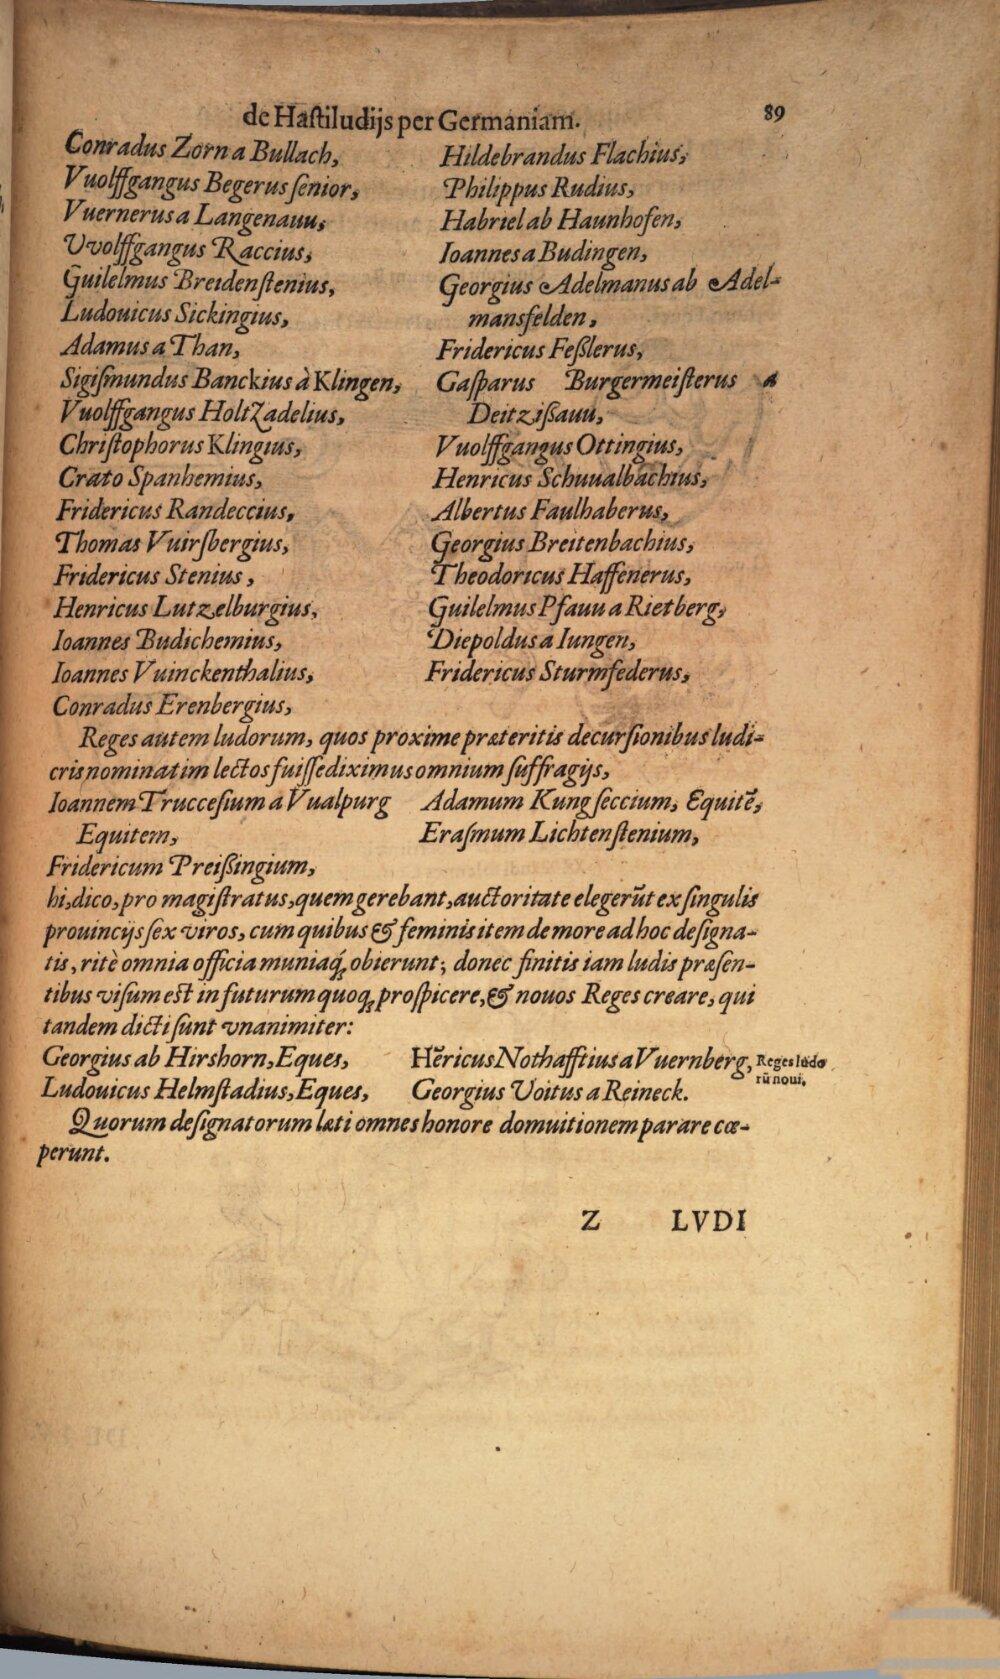 de Hastiludijs per Germaniam. 89
Conradus Zorn a Bullach,
Vuolffgangus Begerus senior,
Vuernerus a Langenauu,
Uvolffgangus Raccius,
Guilelmus Breidenstenius,
Ludouicus Sickingius,
Adamus a Than,
Sigismundus Banckius à Klingen,
Vuolffgangus HoltZadelius,
Christophorus Klingius,
Crato Spanhemius,
Fridericus Randeccius,
Thomas Vuirsbergius,
Fridericus Stenius,
Henricus Lutzelburgius,
Ioannes Budichemius,
Ioannes Vuinckenthalius,
Conradus Erenbergius,
Hildebrandus Flachius,
Philippus Rudius,
Habriel ab Haunhofen,
Ioannes a Budingen,
Georgius Adelmanus ab Adel-
mansfelden,
Fridericus Feßlerus,
Gasparus Burgermeisterus a
Deitzißauu,
Vuolffgangus Ottingius,
Henricus Schuualbachius,
Albertus Faulhaberus,
Georgius Breitenbachius,
Theodoricus Haffenerus,
Guilelmus Pfauu a Rietberg,
Diepoldus a Iungen,
Fridericus Sturmfederus,
Reges autem ludorum, quos proxime præteritis decursionibus ludi-
cris nominatim lectos fuisse diximus omnium suffragijs,
Ioannem Truccesium a Vualpurg
Equitem,
Fridericum Preißingium,
Adamum Kungseccium, Equitē,
Erasmum Lichtenstenium,
hi, dico, pro magistratus, quem gerebant, auctoritate elegerūt ex singulis
prouincijs sex viros, cum quibus & feminis item de more ad hoc designa-
tis, ritè omnia officia muniaq́; obierunt; donec finitis iam ludis præsen-
tibus visum est in futurum quoq; prospicere, & nouos Reges creare, qui
tandem dicti sunt vnanimiter:
Georgius ab Hirshorn, Eques,
Ludouicus Helmstadius, Eques,
Hēricus Nothafftius a Vuernberg,
Georgius Voitus a Reineck.
Reges ludo
rū noui.
Quorum designatorum læti omnes honore domuitionem parare cœ-
perunt.
Z LVDI